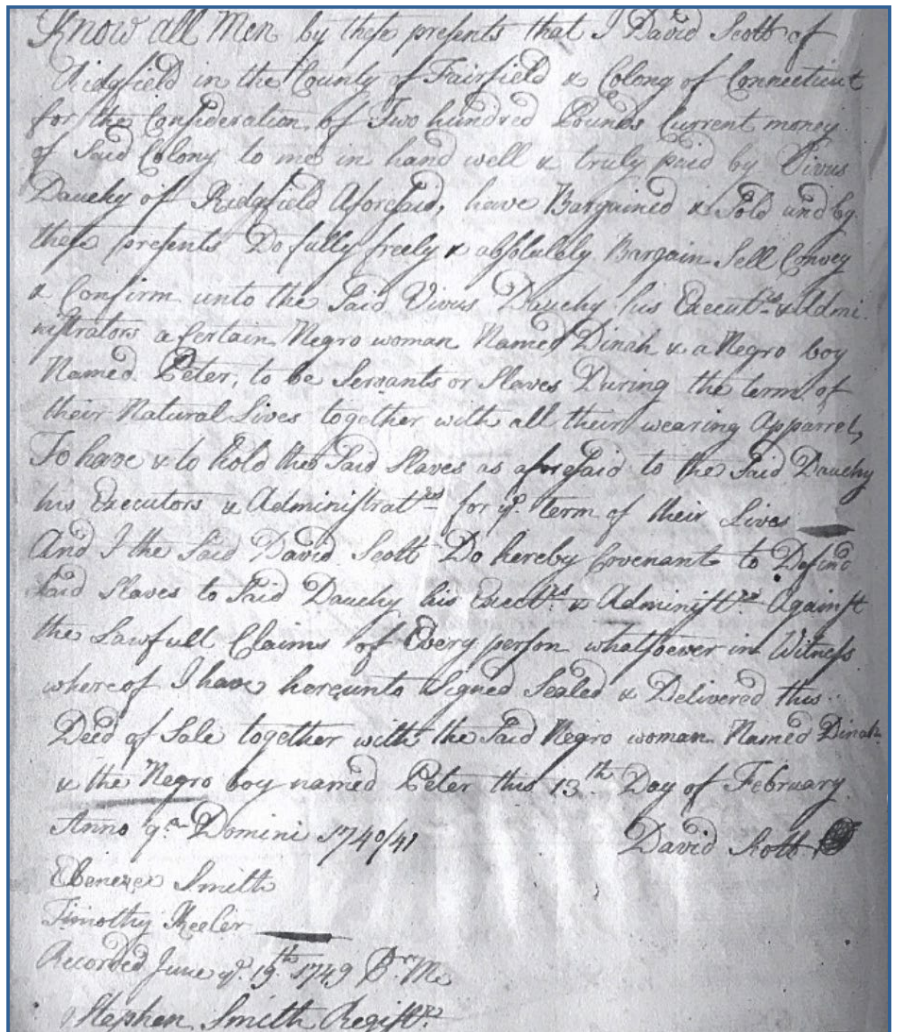 Know all Men by these presents that I David Scott of
Ridgfield in the County of Fairfield & Colony of Connecticut
for the Consideration of Two hundred Pounds Current money
of Said Colony to me in hand well & truly paid by Vivus
Dauchy of Ridgfield Aforesaid, have Bargained & Sold and by
these presents Do fully freely & absolutely Bargain Sell Convey
& Confirm unto the Said Vivus Dauchy his Execut.rs & Admi
nistrators a Certain Negro woman Named Dinah & a Negro boy
Named Peter, to be Servants or Slaves During the term of
their Natural Lives together with all their wearing Apparrel,
To have & to hold the Said Slaves as aforesaid to the Said Dauchy
his Executors & Administrat.rs for ye. term of their Lives
And I the Said David Scott Do hereby Covenant to Defend
Said Slaves to Said Dauchy his Exect.rs & Administ.rs Against
the Lawfull Claims of Every person whatsoever in Witness
whereof I have hereunto Signed Sealed & Delivered this
Deed of Sale together with the Said Negro woman Named Dinah
& the Negro boy named Peter this 13.th Day of February
Anno Domini 1740/41 David Scott
Ebenezer Smith
Timothy Keeler
Recorded June ye. 19.th 1749 Pr. Me
Stephen Smith Regist.rr